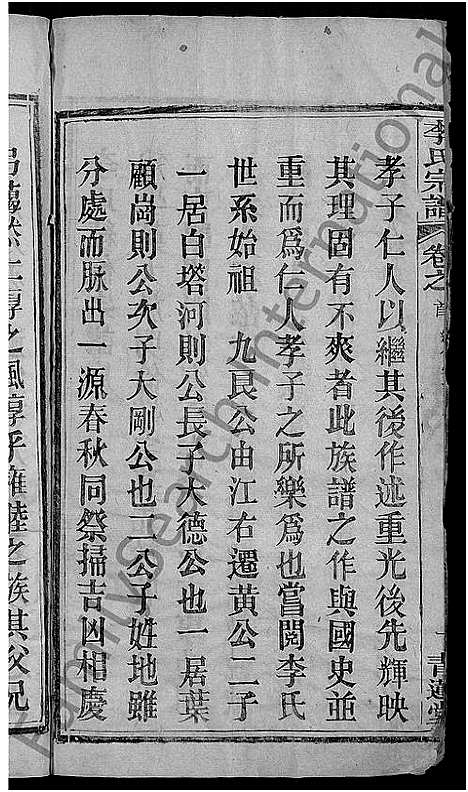 李氏宗譜 卷之首
孝子仁人以繼其後作述重光後先輝映
其理固有不爽者此族譜之作與國史並
重而爲仁人孝子之所樂爲也嘗閱李氏
世系始祖 九艮公由江右遷黄公二子
一居白塔河則公長子大德公也一居葉
顧崗則公次子大剛公也二公子姓地雖
分處而脉出一源春秋同祭掃吉凶相慶
之風淳乎雍睦之族其父兄
FamilySearch International